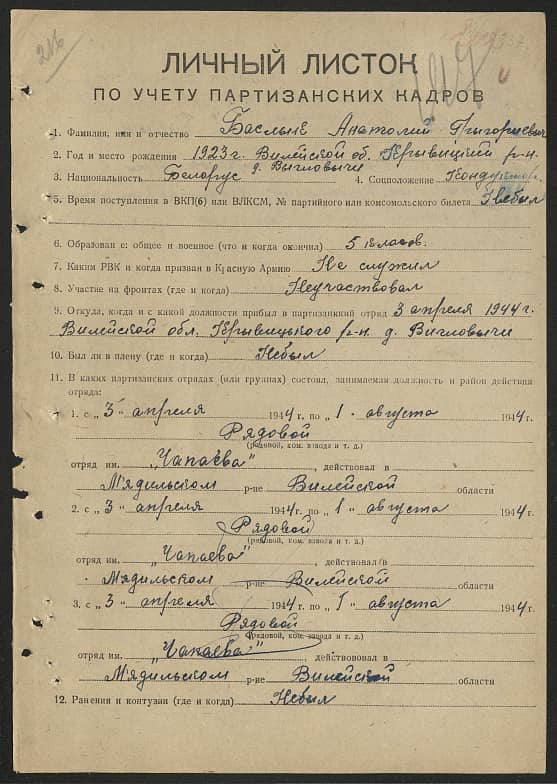 216
ЛИЧНЫЙ ЛИСТОК
ПО УЧЕТУ ПАРТИЗАНСКИХ КАДРОВ
1. Фамилия, имя и отчество Баслык Анатолий Григорьевич
2. Год и место рождения 1923 г. Вилейской об. Крывицкий р-н.
д. Вигловычи
3. Национальность Белорус 4. Соцположение
5. Время поступления в ВКП(б) или ВЛКСМ, № партийного или комсомольского билета Небыл
6. Образование: общее и военное (что и когда окончил) 5 класов.
7. Каким РВК и когда призван в Красную Армию Не служил
8. Участие на фронтах (где и когда) Неучаствовал
9. Откуда, когда и с какой должности прибыл в партизанский отряд 3 апреля 1944 г.
Вилейской обл. Крывицького р-н. д. Вигловычи
10. Был ли в плену (где и когда) Небыл
11. В каких партизанских отрядах (или группах) состоял, занимаемая должность и район действия
отряда:
1. с „3“ апреля 1944 г. по „1“ августа 1944 г.
Рядовой
(рядовой, ком. взвода и т. д.)
отряд им. „Чапаева“, действовал в
Мядильском р-не Вилейской области
2. с „3“ апреля 1944 г. по „1“ августа 1944 г.
Рядовой
(рядовой, ком. взвода и т. д.)
отряд им. „Чапаева“, действовал в
Мядильском р-не Вилейской области
3. с „3“ апреля 1944 г. по „1“ августа 1944 г.
Рядовой
(рядовой, ком. взвода и т. д.)
отряд им. „Чапаева“, действовал в
Мядильском р-не Вилейской области
12. Ранения и контузии (где и когда) Небыл